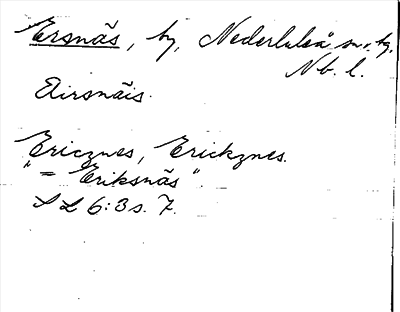 Ersnäs, by, Nederluleå sn., by,
Nb. l.
Airsnäis.
Ericznes, Erickznes.
"= Eriksnäs".
SL 6:3 s. 7.